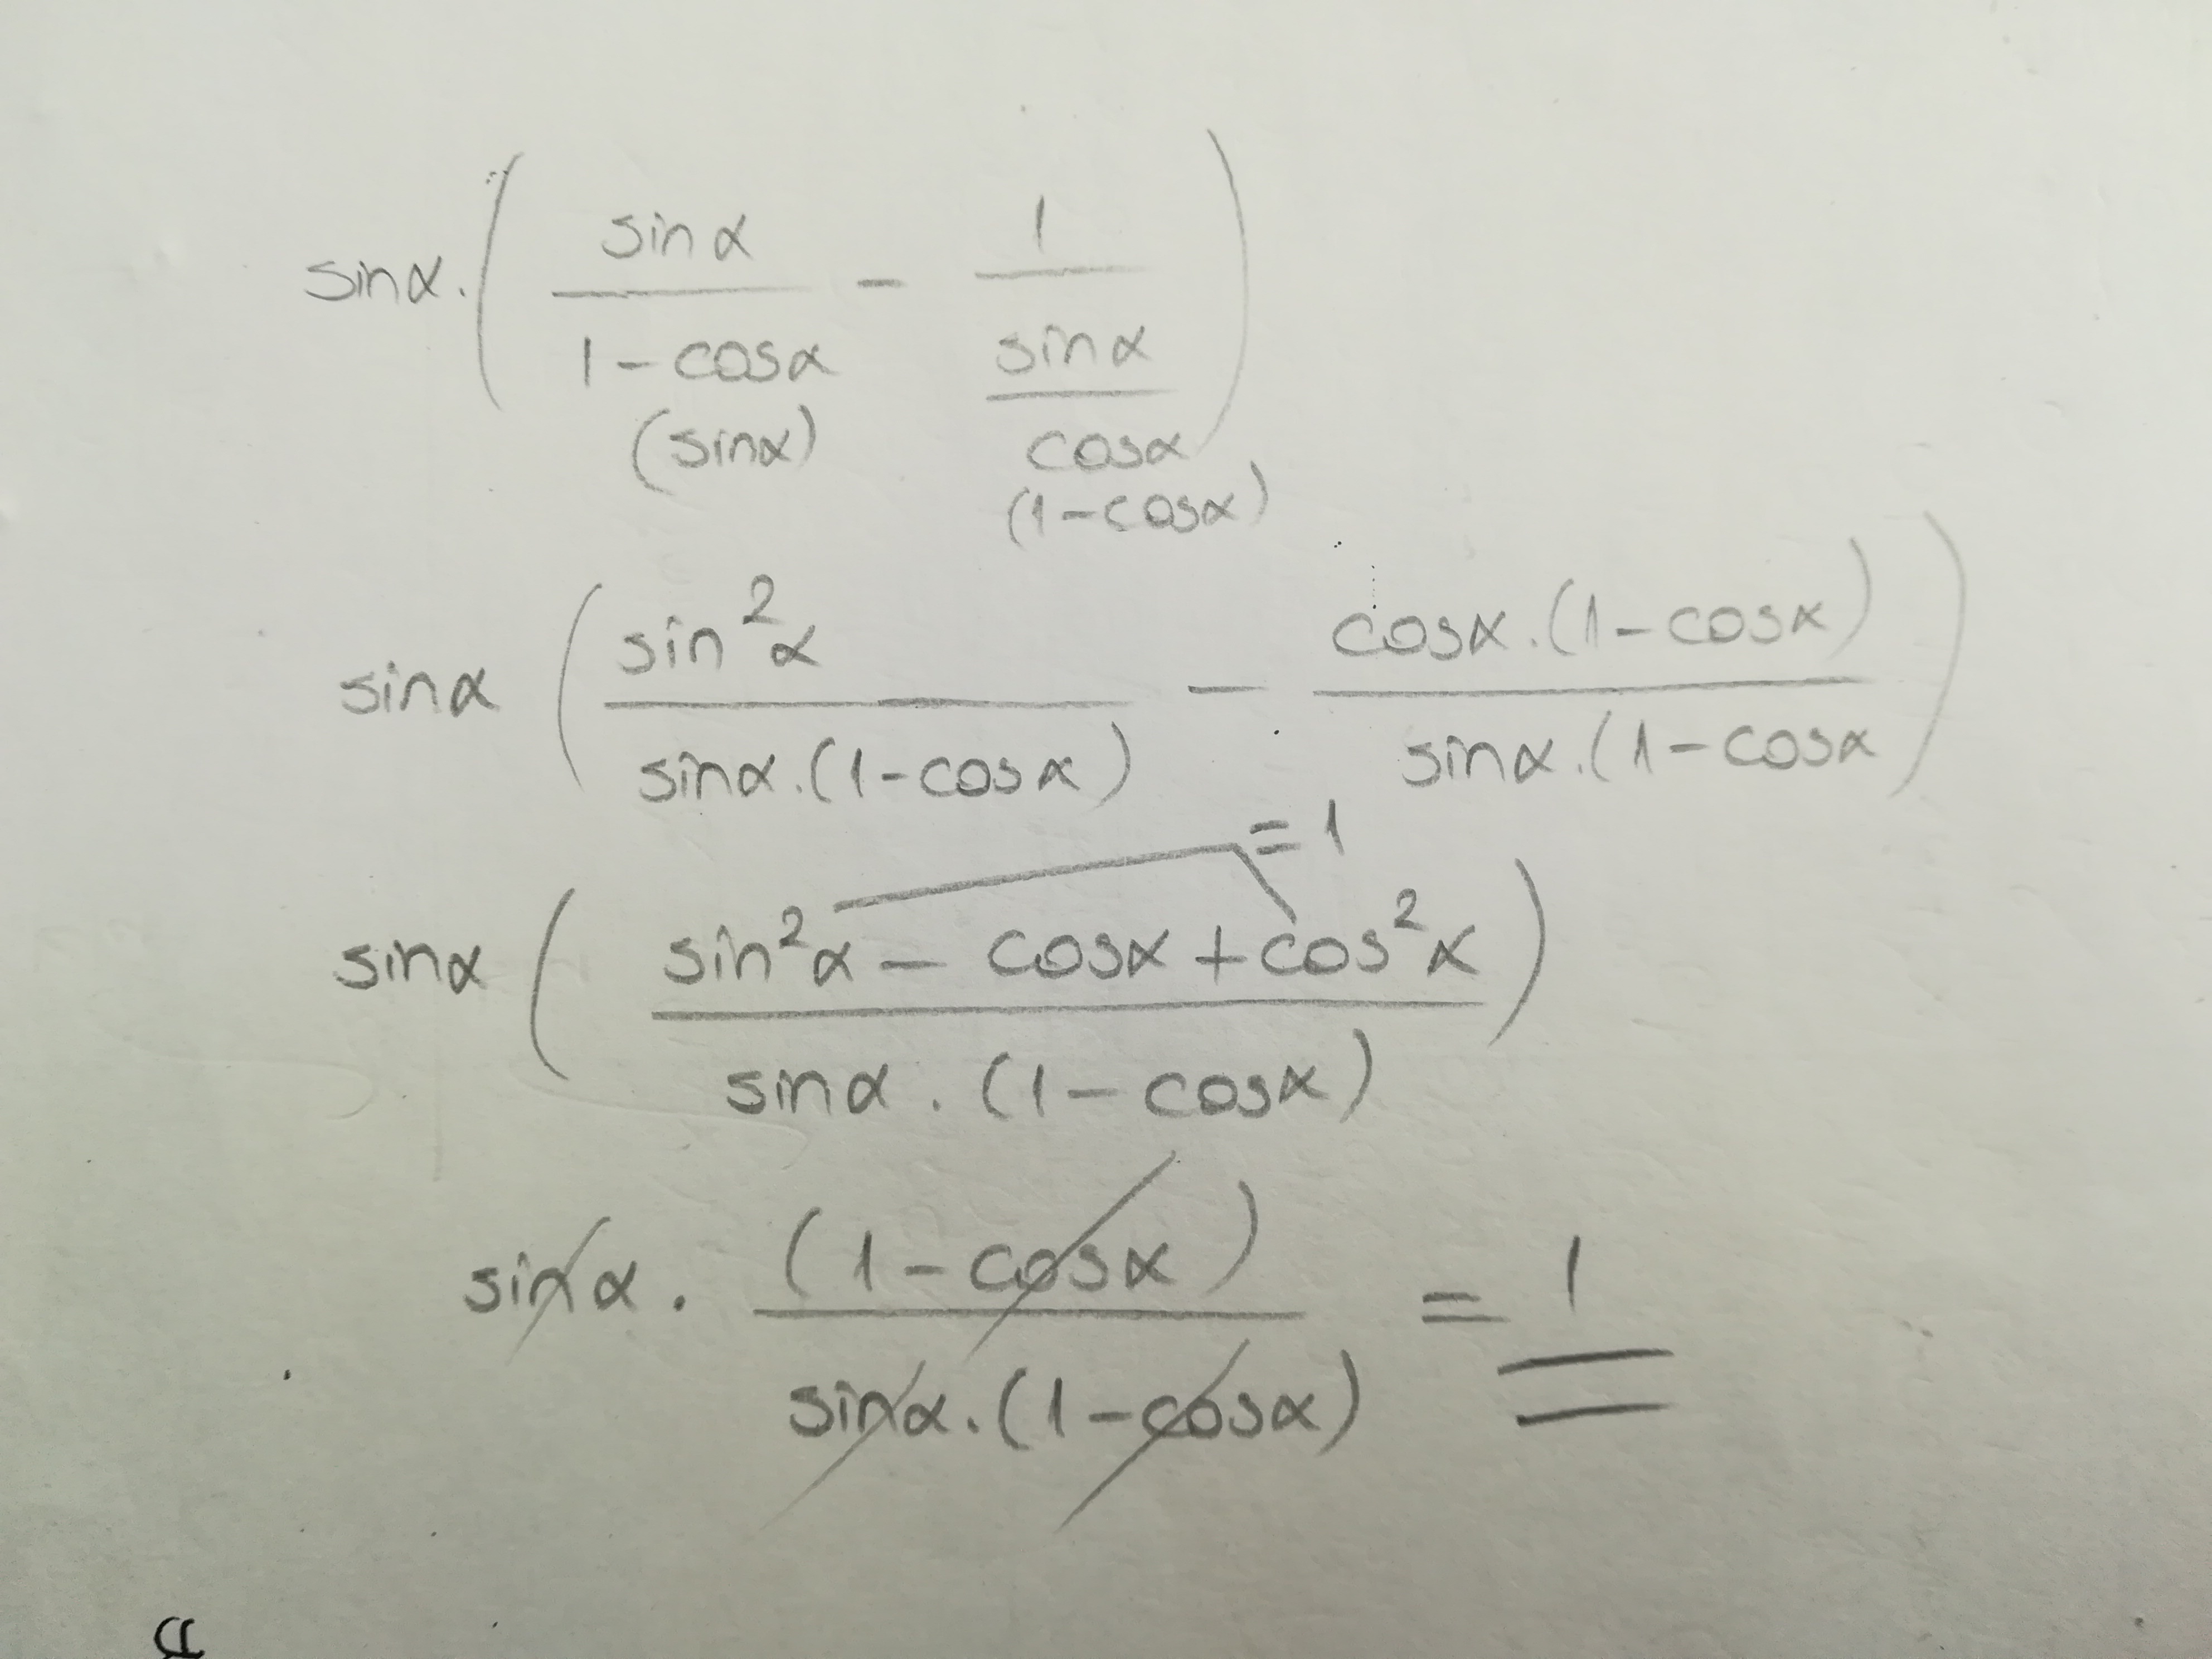 sinα. ( sinα / 1-cosα - 1 / sinα / cosα )
(sinα) (1-cosα)
sinα ( sin²α / sinα.(1-cosα) - cosα.(1-cosα) / sinα.(1-cosα )
=1
sinα ( sin²α - cosα + cos²α / sinα . (1-cosα) )
sinα . (1-cosα) / sinα.(1-cosα) = 1